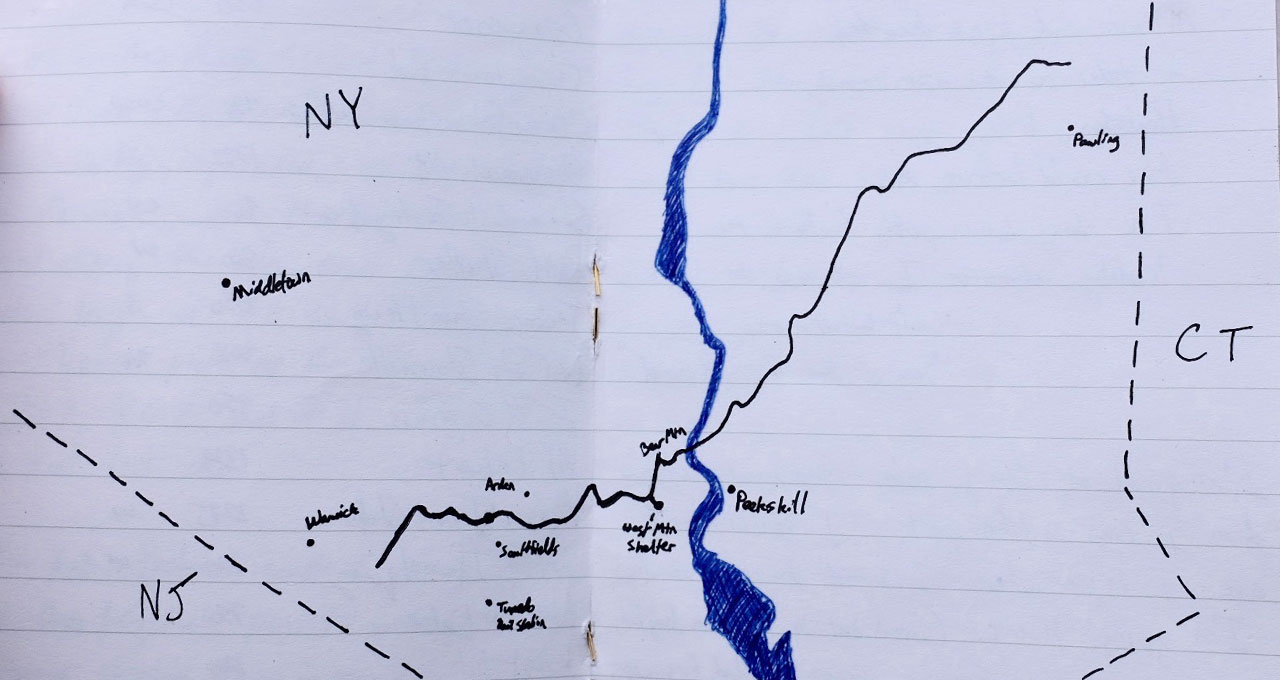 NY
Pawling
Middletown
CT
Bear Mtn
Arden
Peekskill
Warwick
West Mtn
Shelter
Southfields
NJ
Tuxedo